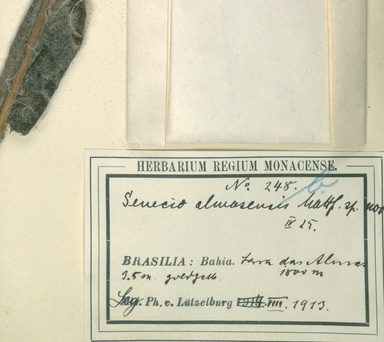 HERBARIUM REGIUM MONACENSE.
No. 248.
Senecio almasensis Mattf. sp. nov
IV 25.
BRASILIA: Bahia. Serra das Almas
3.5 m. goldgelb. 1800 m
Leg. Ph. v. Lützelburg VIII. 1913.